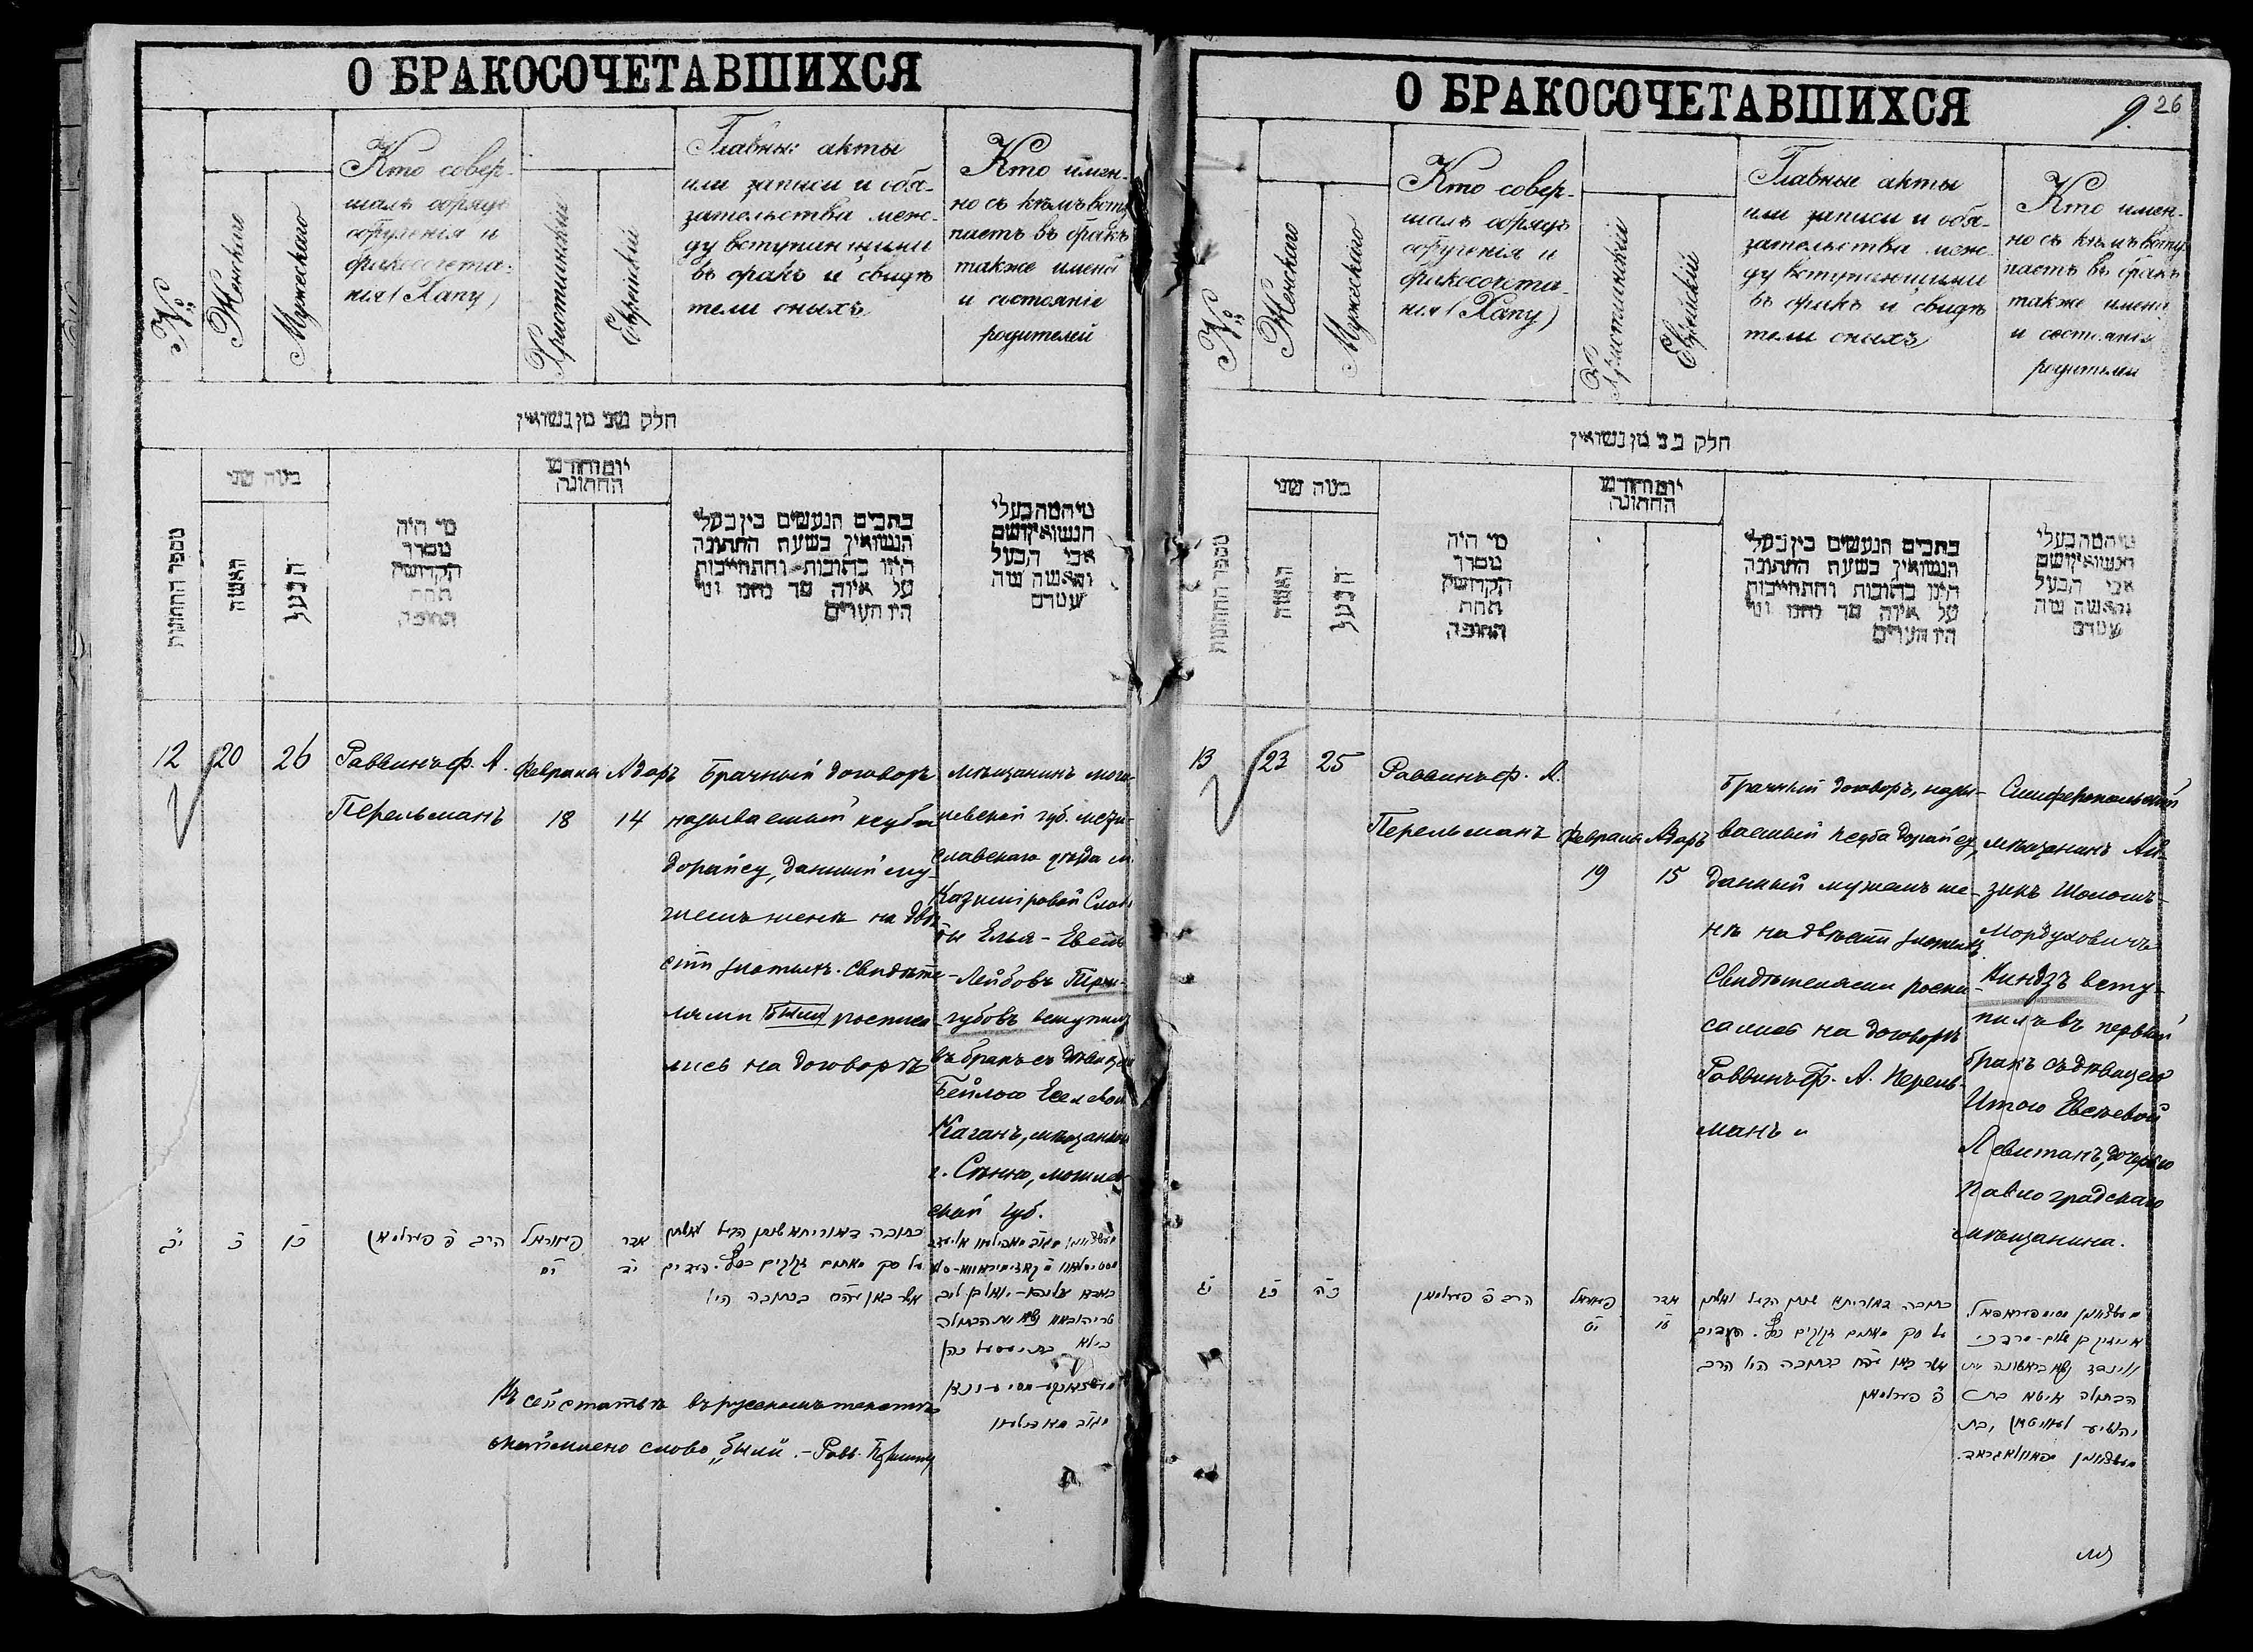 О БРАКОСОЧЕТАВШИХСЯ
№
Женскаго
Мужескаго
Кто совер-
шалъ обрядъ
обрученія и
бракосочета-
нія (Хапу)
Христіанскій
Еврейскій
Главные акты
или записи и обя-
зательства меж-
ду вступающими
въ бракъ и свидѣ
тели оныхъ
Кто имен-
но съ кѣмъ всту
паетъ въ бракъ
также имена
и состояніе
родителей
חלק שני מן נשואין
מספר החתונות
כמה שני
האשה
הבעל
מי היה
מסדר
הקדושין
תחת
החופה
יום וחדש
החתונה
כתבים הנעשים בין בעלי
הנשואין בשעת החתונה
היינו כתובות והתחייבות
על איזה סך נתנו ומי
היו העדים
מי המה בעלי
הנשואין ושם
אבי הבעל
והאשה ומה
מעמדם
12
20
26
Раввинъ Ф. А.
Перельманъ
Февраля
18
Адаръ
14
Брачный договоръ
называемый кцуба
дорайсу, данный му-
жемъ женѣ на двѣ
сти злотыхъ. Свидѣте
лями были росписа
лись на договорѣ
мѣщанинъ моги-
левской губ. мсти-
славскаго уѣзда м.
Казиміровой Слобо
ды Елья-Евель
-Лейбовъ
губовъ вступилъ
въ бракъ съ дѣвицею
Бейлою Еселевой
Каганъ, мѣщанкой
г. Сѣнно, могилев
ской губ.
יב
כ
כו
הרב פ פערלמאן
פעווראל
יח
אדר
יד
כתובה דאוריתא שנתן הבעל לאשתו
על סך מאתים זקוקים כסף. העדים
אשר באו עה״ח בכתובה היו
Въ сей статьѣ въ русскомъ текстѣ
слово „были". - Равв.
О БРАКОСОЧЕТАВШИХСЯ
9. 26
№
Женскаго
Мужескаго
Кто совер-
шалъ обрядъ
обрученія и
бракосочета-
нія (Хапу)
Христіанскій
Еврейскій
Главные акты
или записи и обя-
зательства меж-
ду вступающими
въ бракъ и свидѣ
тели оныхъ
Кто имен-
но съ кѣмъ всту
паетъ въ бракъ
также имена
и состояніе
родителей
חלק שני מן נשואין
מספר החתונות
כמה שני
האשה
הבעל
מי היה
מסדר
הקדושין
תחת
החופה
יום וחדש
החתונה
כתבים הנעשים בין בעלי
הנשואין בשעת החתונה
היינו כתובות והתחייבות
על איזה סך נתנו ומי
היו העדים
מי המה בעלי
הנשואין ושם
אבי הבעל
והאשה ומה
מעמדם
13
23
25
Раввинъ Ф. А.
Перельманъ
Февраля
19
Адаръ
15
Брачный договоръ, назы-
ваемый кцуба дорайсу,
данный мужемъ же-
нѣ на двѣсти злотыхъ
Свидѣтелями роспи-
сались на договорѣ
Раввинъ Ф. А. Перель-
манъ и
Симферопольскій
мѣщанинъ Ай-
зикъ Шоломъ-
Мордуховичъ
Киндзъ всту-
пилъ въ первый
бракъ съ дѣвицею
Итою Евсѣевой
Левитанъ, дочерью
Павлоградскаго
мѣщанина.
יג
כג
כה
הרב פ פערלמאן
פעווראל
יט
אדר
טו
כתובה דאוריתא שנתן הבעל לאשתו
על סך מאתים זקוקים כסף. העדים
אשר באו עה״ח בכתובה היו הרב
פ פערלמאן